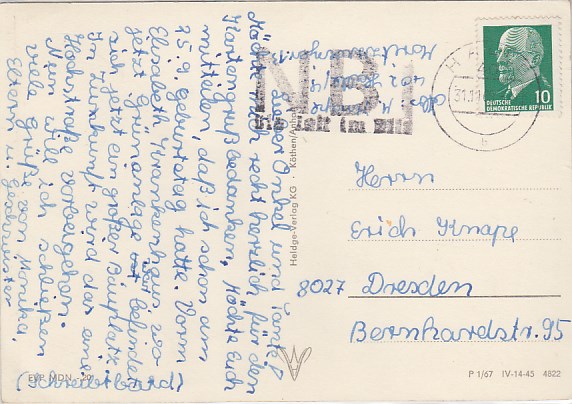 Lieber Onkel und Tante!
Möchte mich recht herzlich für den
Kartengruß bedanken. Möchte Euch
mitteilen, daß ich schon am
25.9. Geburtstag hatte. Vorm
Elisabeth Krankenhaus, wo
jetzt Grünanlage war befindet
sich jetzt ein großer Bauplatz.
In Zukunft wird da eine
Hochstraße vorbeigehen.
Nun will ich schließen
viele Grüße von Monika
Eltern u. Geschwister
(Schreibtband)
NBI
Die Zeit im Bild
HA
31.11
10
DEUTSCHE
DEMOKRATISCHE REPUBLIK
Herrn
Erich Knape
8027 Dresden
Bernhardstr. 95
Heldge-Verlag KG Köthen/Anhalt
EVP MDN -,20
P 1/67 IV-14-45 4822